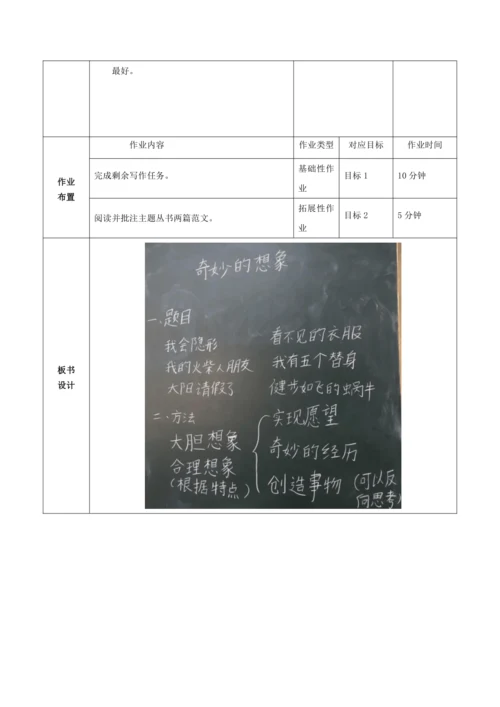 最好。
作业内容 作业类型 对应目标 作业时间
作业
布置
完成剩余写作任务。 基础性作业 目标1 10分钟
阅读并批注主题丛书两篇范文。 拓展性作业 目标2 5分钟
板书
设计
奇妙的想象
一、题目
我会隐形 看不见的衣服
我的火柴人朋友 我有五个替身
太阳请假了 健步如飞的蜗牛
二、方法
大胆想象
合理想象
(根据特点)
实现愿望
奇妙的经历
创造事物 (可以反
向思考)